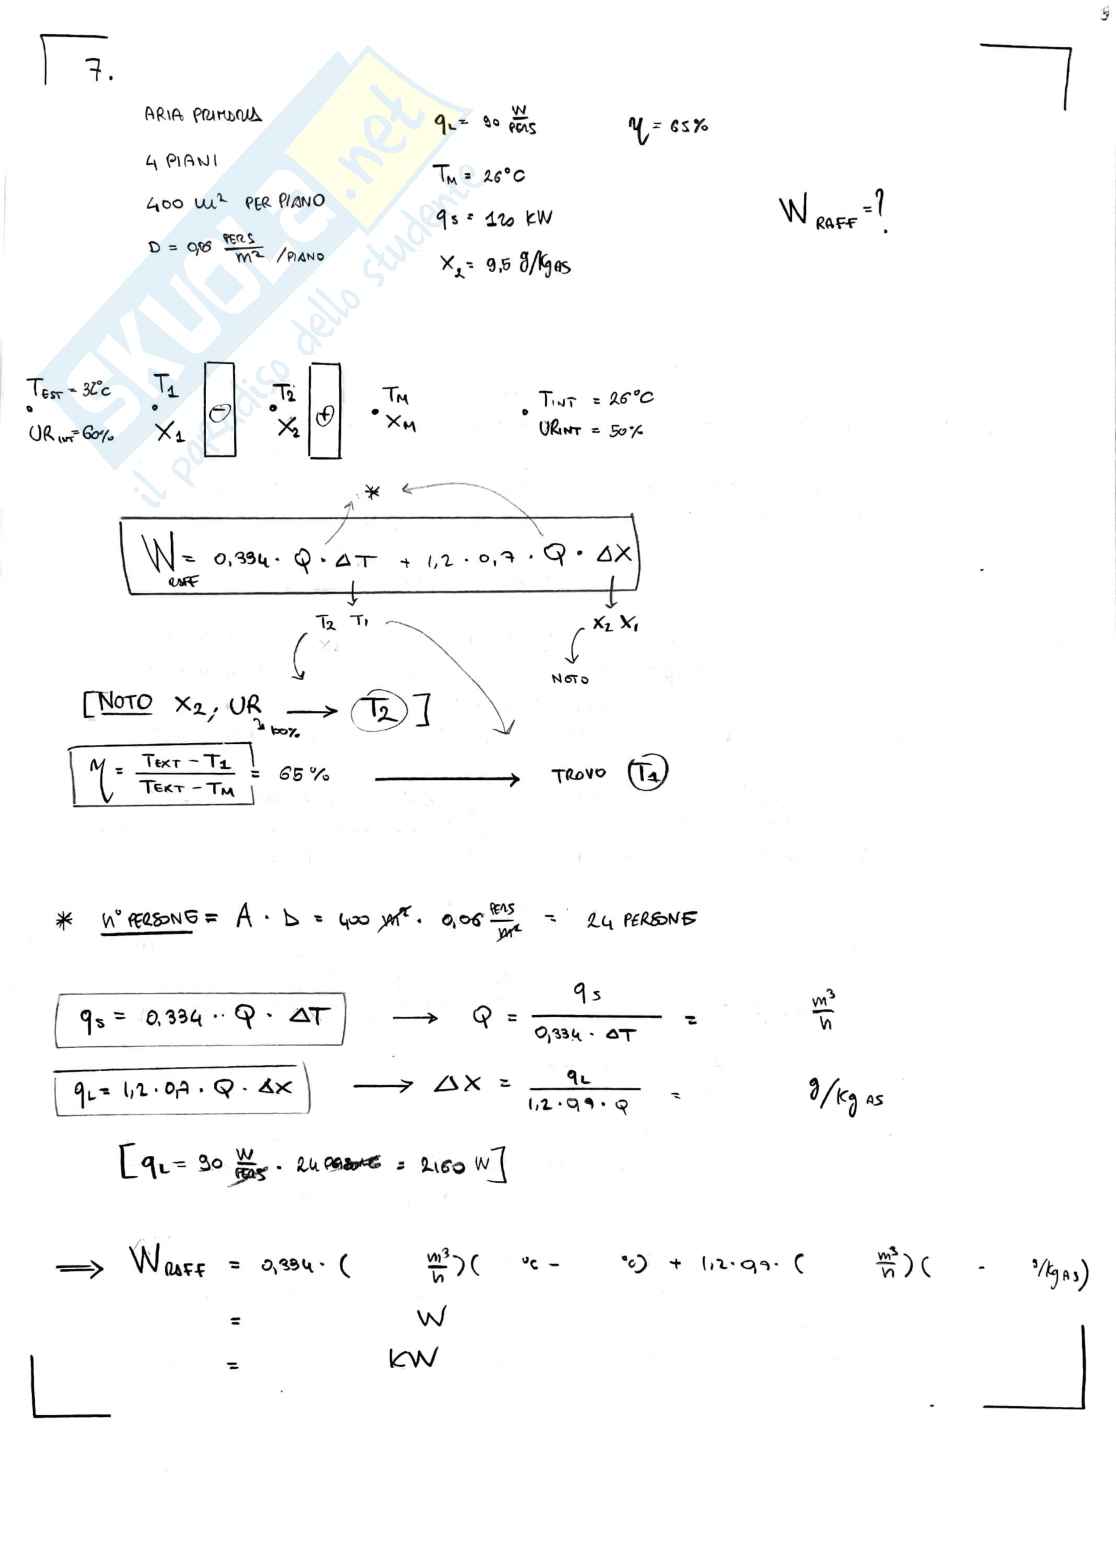 5
7.
ARIA PRIMARIA
4 PIANI
400 m² PER PIANO
D = 0,06 PERS/m² /PIANO
qL = 90 W/PERS
TM = 26°C
qs = 120 KW
X2 = 9,5 g/KgAS
η = 65%
W RAFF = ?
SKUOLA.net
il paradiso dello studente
TEST = 32°C
URINT = 60%
T1
X1
-
T2
X2
+
TM
XM
TINT = 26°C
URINT = 50%
*
W RAFF = 0,334 · Q · ΔT + 1,2 · 0,7 · Q · ΔX
T2 T1
X2 X1
NOTO
[NOTO X2, UR → T2]
100%
η = TEXT - T1 / TEXT - TM = 65% → TROVO T1
* n° PERSONE = A · D = 400 m² · 0,06 PERS/m² = 24 PERSONE
qs = 0,334 · Q · ΔT → Q = qs / 0,334 · ΔT = m³/h
qL = 1,2 · 0,7 · Q · ΔX → ΔX = qL / 1,2 · 0,7 · Q = g/Kg AS
[qL = 90 W/PERS · 24 PERSONE = 2160 W]
⇒ W RAFF = 0,334 · ( m³/h)( °C - °C) + 1,2 · 0,7 · ( m³/h)( - g/KgAS)
= W
= KW